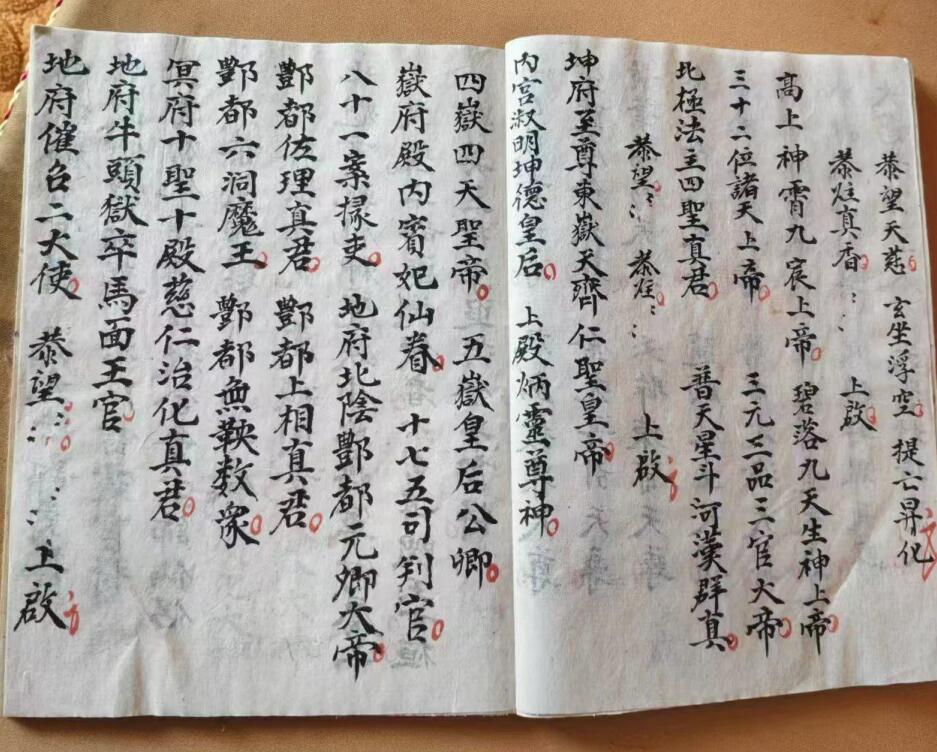 恭望天慈 玄坐浮空 提亡昇化
恭炷真香：： 上啟
高上神霄九宸上帝 碧落九天生神上帝
三十二位諸天上帝 三元三品三官大帝
北極法主四聖真君 普天星斗河漢群真
恭望：： 恭炷：： 上啟
坤府至尊東嶽天齊仁聖皇帝
内宮淑明坤德皇后 上殿炳靈尊神
四嶽四天聖帝 五嶽皇后公卿
嶽府殿内賓妃仙眷 十七五司判官
八十一案掾吏 地府北陰酆都元卿大帝
酆都佐理真君 酆都上相真君
酆都六洞魔王 酆都無鞅数衆
冥府十聖十殿慈仁治化真君
地府牛頭獄卒馬面王官
地府催召二大使 恭望：：：： 上啟